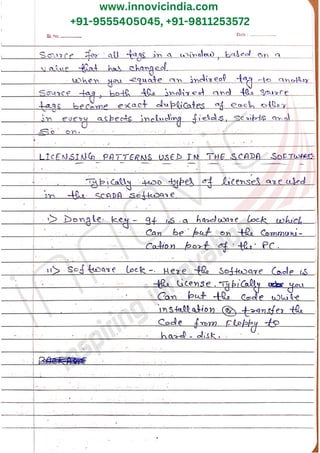 www.innovicindia.com
+91-9555405045, +91-9811253572
Date :
Source for all tags in a window, based on a
value that has changed.
When you equate an indirect tag to another
Source tag, both the indirect and the source
tags become exact duplicates of each other
in every aspects including fields, scripts and
so on.
LICENSING PATTERNS USED IN THE SCADA SOFTWARES
Typically two types of licenses are used
in the SCADA Software.
i) Dongle key - It is a hardware lock which
can be put on the Communi-
cation port of the PC.
ii) Software lock - Here the Software Code is
the license. Typically you
can put the code while
installation or transfer the
code from Floppy to
hard-disk.